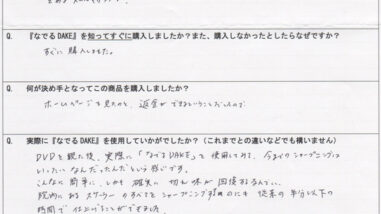 Q. 『なでるDAKE』を知ってすぐに購入しましたか？また、購入しなかったとしたらなぜですか？
すぐに購入しました。
Q. 何が決め手となってこの商品を購入しましたか？
ホームページを見たのと、返金ができるということだったので
Q. 実際に『なでるDAKE』を使用していかがでしたか？（これまでとの違いなどでも構いません）
DVDを観た後、実際に「なでるDAKE」を使用してみて、今までのシャープニングは
いったいなんだったんだという感じです。
こんなに簡単に、しかも確実に切れ味が回復するなんて。
院内にあるスケーラーのすべてをシャープニングするのにも従来の半分以下の
時間で仕上げることができました。